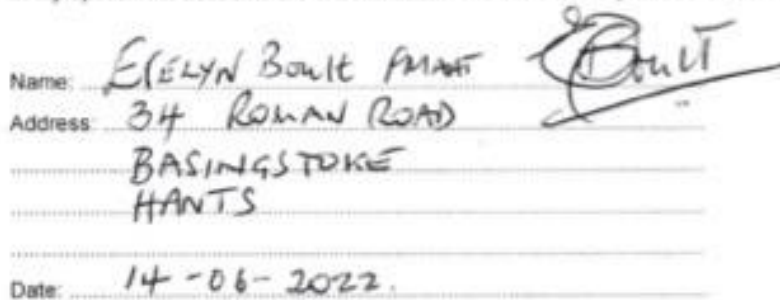 Name: Evelyn Boult FMAAT EBoult
Address: 34 ROMAN ROAD
BASINGSTOKE
HANTS
Date: 14-06-2022.